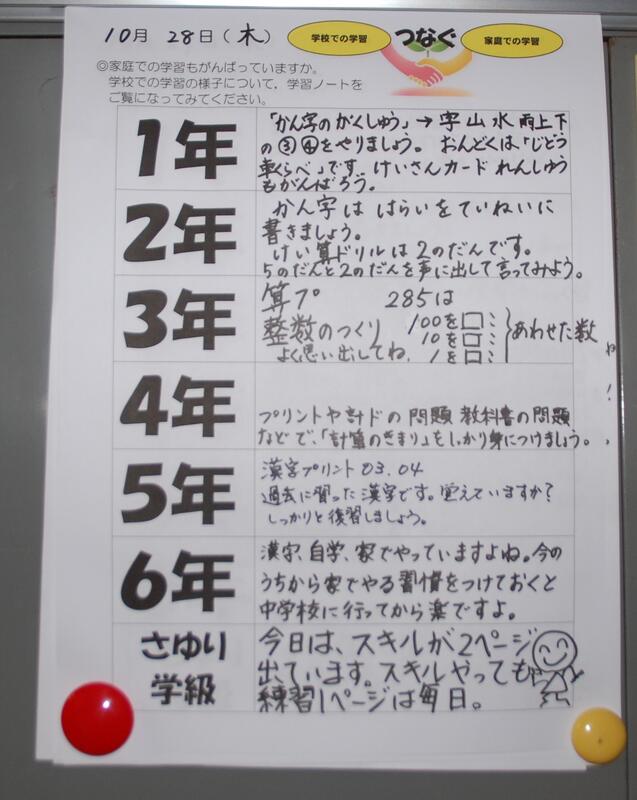 10月 28日(木)
学校での学習 つなぐ 家庭での学習
◎家庭での学習もがんばっていますか。
学校での学習の様子について,学習ノートを
ご覧になってみてください。
1年
「かん字のがくしゅう」→字山水雨上下
の③④をやりましょう。おんどくは「じどう
車くらべ」です。けいさんカードれんしゅう
もがんばろう。
2年
かん字は はらいをていねいに
書きましょう。
けい算ドリルは2のだんです。
5のだんと2のだんを声に出して言ってみよう。
3年
算プ 285は
整数のつくり 100を□こ
よく思い出してね。 10を□こ あわせた数
1を□こ
4年
プリントや計ドの問題 教科書の問題
などで、「計算のきまり」をしっかり身につけましょう。
5年
漢字プリント03.04
過去に習った漢字です。覚えていますか?
しっかりと復習しましょう。
6年
漢字、自学、家でやっていますよね。今の
うちから家でやる習慣をつけておくと
中学校に行ってから楽ですよ。
さゆり
学級
今日は、スキルが2ページ
出ています。スキルやっても
練習1ページは毎日。